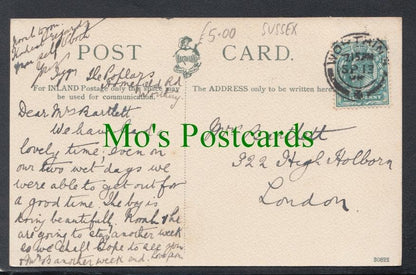 £5.00 SUSSEX
POST CARD.
The Poplars
For INLAND Postage only this space may
be used for communication.
The ADDRESS only to be written here.
WORTHING
SP 13
Dear Mrs Bartlett
We have had
lovely time, even on
our two wet days we
were able to get out for
a good time. The boy is
doing beautifully, Noah & he
are going to stay another week
so we shall hope to see you
& Mr B another week end.
Mrs Bartlett
322 High Holborn
London.
Mo's Postcards